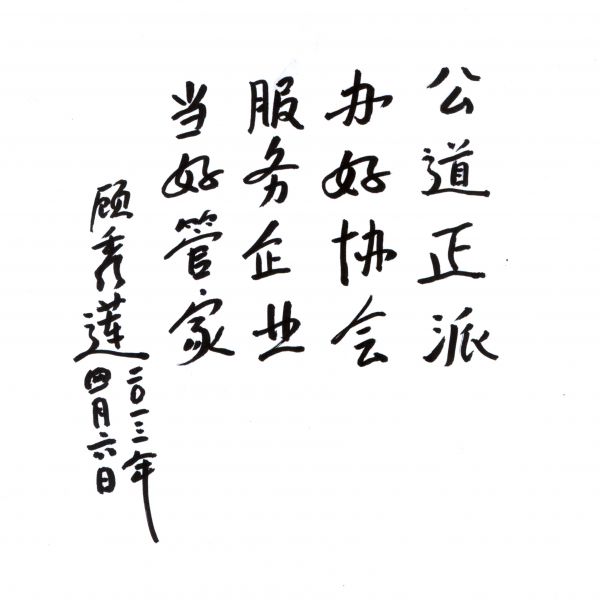 公道正派
办好协会
服务企业
当好管家
顾秀莲
二〇一三年
四月六日